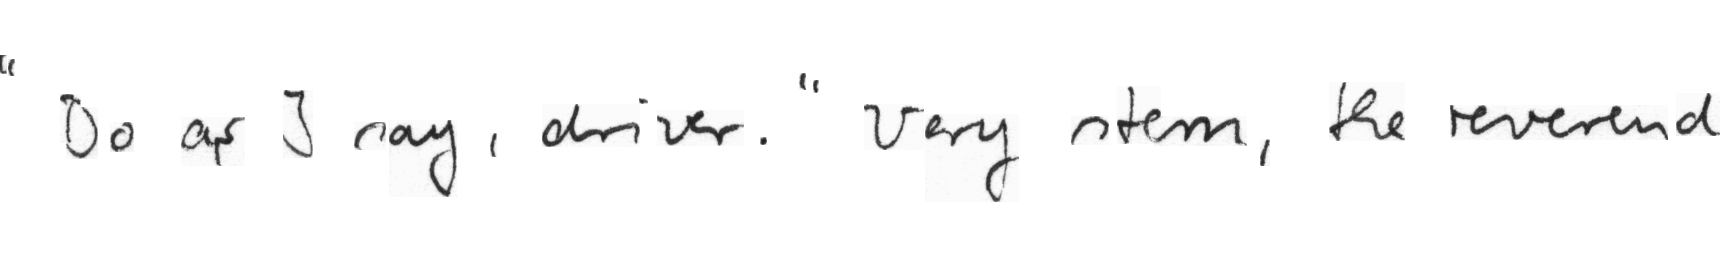 "Do as I say, driver." Very stern, the reverend